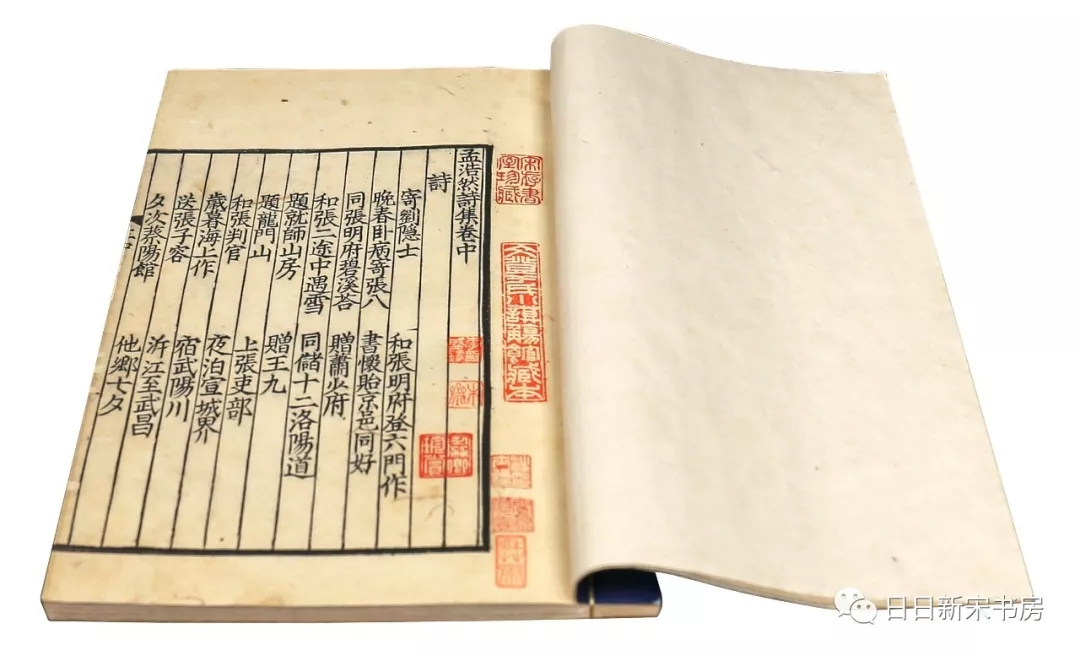 宋存書室珍藏
文登于氏小謨觴館藏本
孟浩然詩集卷中
詩
寄劉隠士 和張明府登六門作
晚春卧病寄張八 書懷貽京邑同好
同張明府碧溪荅 贈蕭少府
和張二途中遇雪 同儲十二洛陽道
題就師山房 贈王九
題龍門山 上張吏部
和張判官 夜泊宣城界
歲暮海上作 宿武陽川
送張子容 泝江至武昌
夕次蔡陽館 他鄉七夕
日日新宋书房